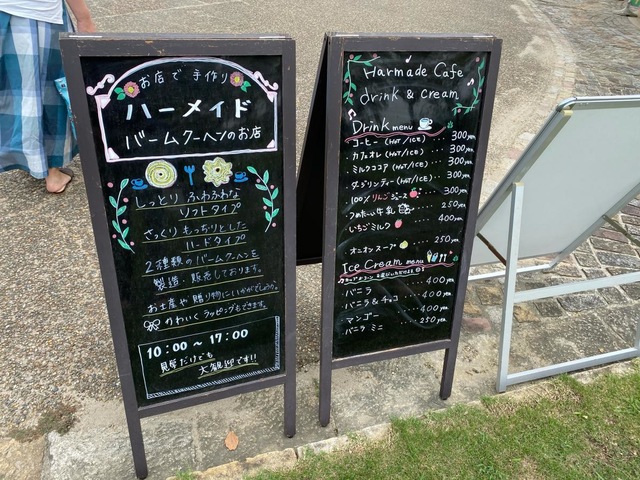 お店で手作り
ハーメイド
バームクーヘンのお店
しっとり ふわふわな
ソフトタイプ
さっくり もっちりとした
ハードタイプ
2種類のバームクーヘンを
製造・販売しております。
お土産や贈り物にいかがでしょう。
かわいくラッピングもできます。
10:00〜17:00
見学だけでも
大歓迎です!!
Harmade Cafe
drink & cream
Drink menu
コーヒー (HOT/ICE) ・・・ 300yen
カフェオレ (HOT/ICE) ・・・ 300yen
ミルクココア (HOT/ICE) ・・・ 300yen
ダージリンティー (HOT/ICE) ・・・ 300yen
100%りんごジュース ・・・ 300yen
つめたい牛乳 ・・・ 250yen
いちごミルク ・・・ 400yen
オニオンスープ ・・・ 250yen
Ice Cream menu
バニラ ・・・ 400yen
バニラ&チョコ ・・・ 400yen
マンゴー ・・・ 400yen
バニラ ミニ ・・・ 250yen